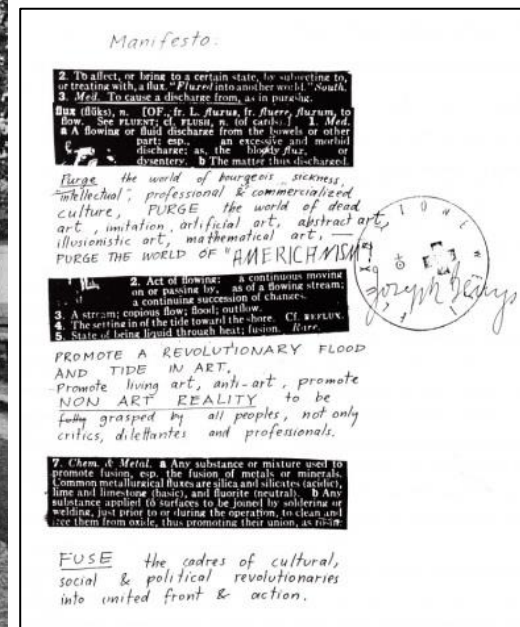 Manifesto:
2. To affect, or bring to a certain state, by subjecting to,
or treating with, a flux. "Fluxed into another world." South.
3. Med. To cause a discharge from, as in purging.
flux (flŭks), n. [OF., fr. L. fluxus, fr. fluere, fluxum, to
flow. See FLUENT; cf. FLUSH, n. (of cards).] 1. Med.
a A flowing or fluid discharge from the bowels or other
part: esp., an excessive and morbid
discharge; as, the bloody flux, or
dysentery. b The matter thus discharged.
Purge the world of bourgeois sickness,
"intellectual", professional & commercialized
culture, PURGE the world of dead
art, imitation, artificial art, abstract art,
illusionistic art, mathematical art, —
PURGE THE WORLD OF "AMERICANISM"!
2. Act of flowing: a continuous moving
on or passing by, as of a flowing stream;
a continuing succession of changes.
3. A stream; copious flow; flood; outflow.
4. The setting in of the tide toward the shore. Cf. REFLUX.
5. State of being liquid through heat; fusion. Rare.
Joseph Beuys
PROMOTE A REVOLUTIONARY FLOOD
AND TIDE IN ART.
Promote living art, anti-art, promote
NON ART REALITY to be
fully grasped by all peoples, not only
critics, dilettantes and professionals.
7. Chem. & Metal. a Any substance or mixture used to
promote fusion, esp. the fusion of metals or minerals.
Common metallurgical fluxes are silica and silicates (acidic),
lime and limestone (basic), and fluorite (neutral). b Any
substance applied to surfaces to be joined by soldering or
welding, just prior to or during the operation, to clean and
free them from oxide, thus promoting their union, as rosin.
FUSE the cadres of cultural,
social & political revolutionaries
into united front & action.